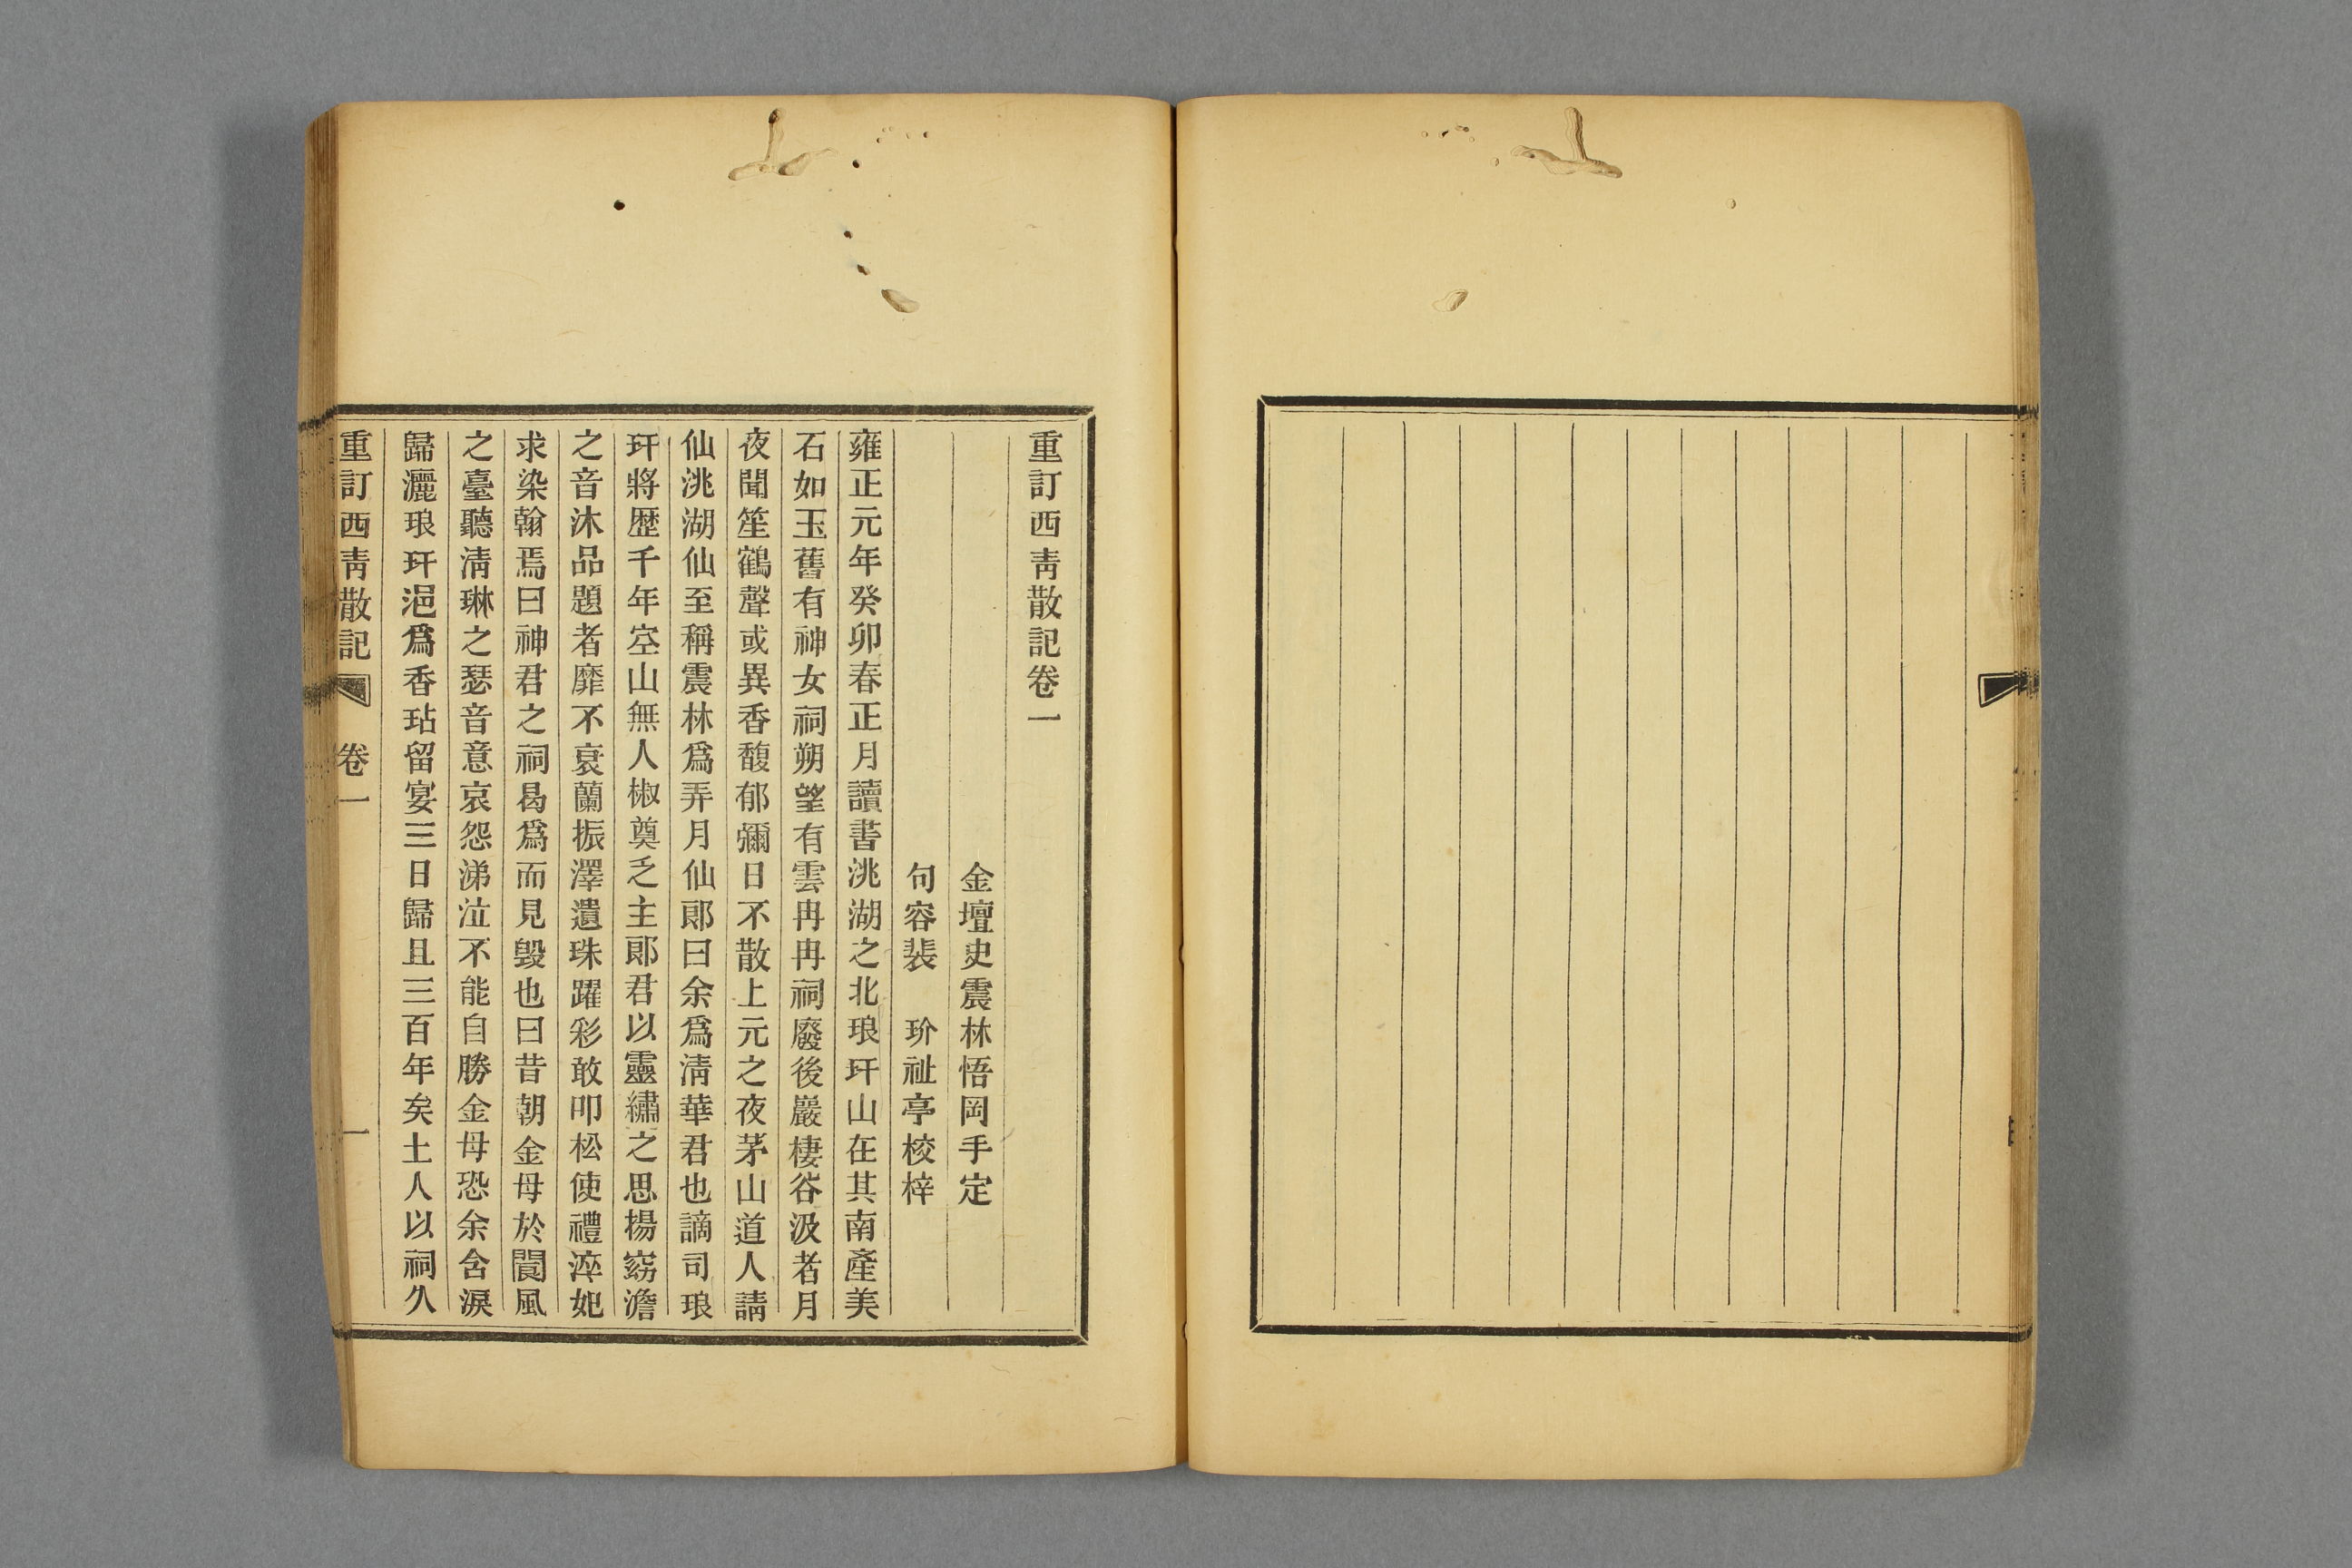 重訂西青散記卷一
金壇史震林悟岡手定
句容裴　玠祉亭校梓
雍正元年癸卯春正月讀書洮湖之北琅玕山在其南產美
石如玉舊有神女祠朔望有雲冉冉祠廢後巖棲谷汲者月
夜聞笙鶴聲或異香馥郁彌日不散上元之夜茅山道人請
仙洮湖仙至稱震林爲弄月仙郞曰余爲淸華君也謫司琅
玕將歷千年空山無人椒奠乏主郞君以靈繡之思揚窈澹
之音沐品題者靡不衰蘭振澤遺珠躍彩敢叩松使禮滓妃
求染翰焉曰神君之祠曷爲而見毀也曰昔朝金母於閬風
之臺聽淸琳之瑟音意哀怨涕泣不能自勝金母恐余含淚
歸灑琅玕浥爲香玷留宴三日歸且三百年矣土人以祠久
重訂西青散記　卷一　一